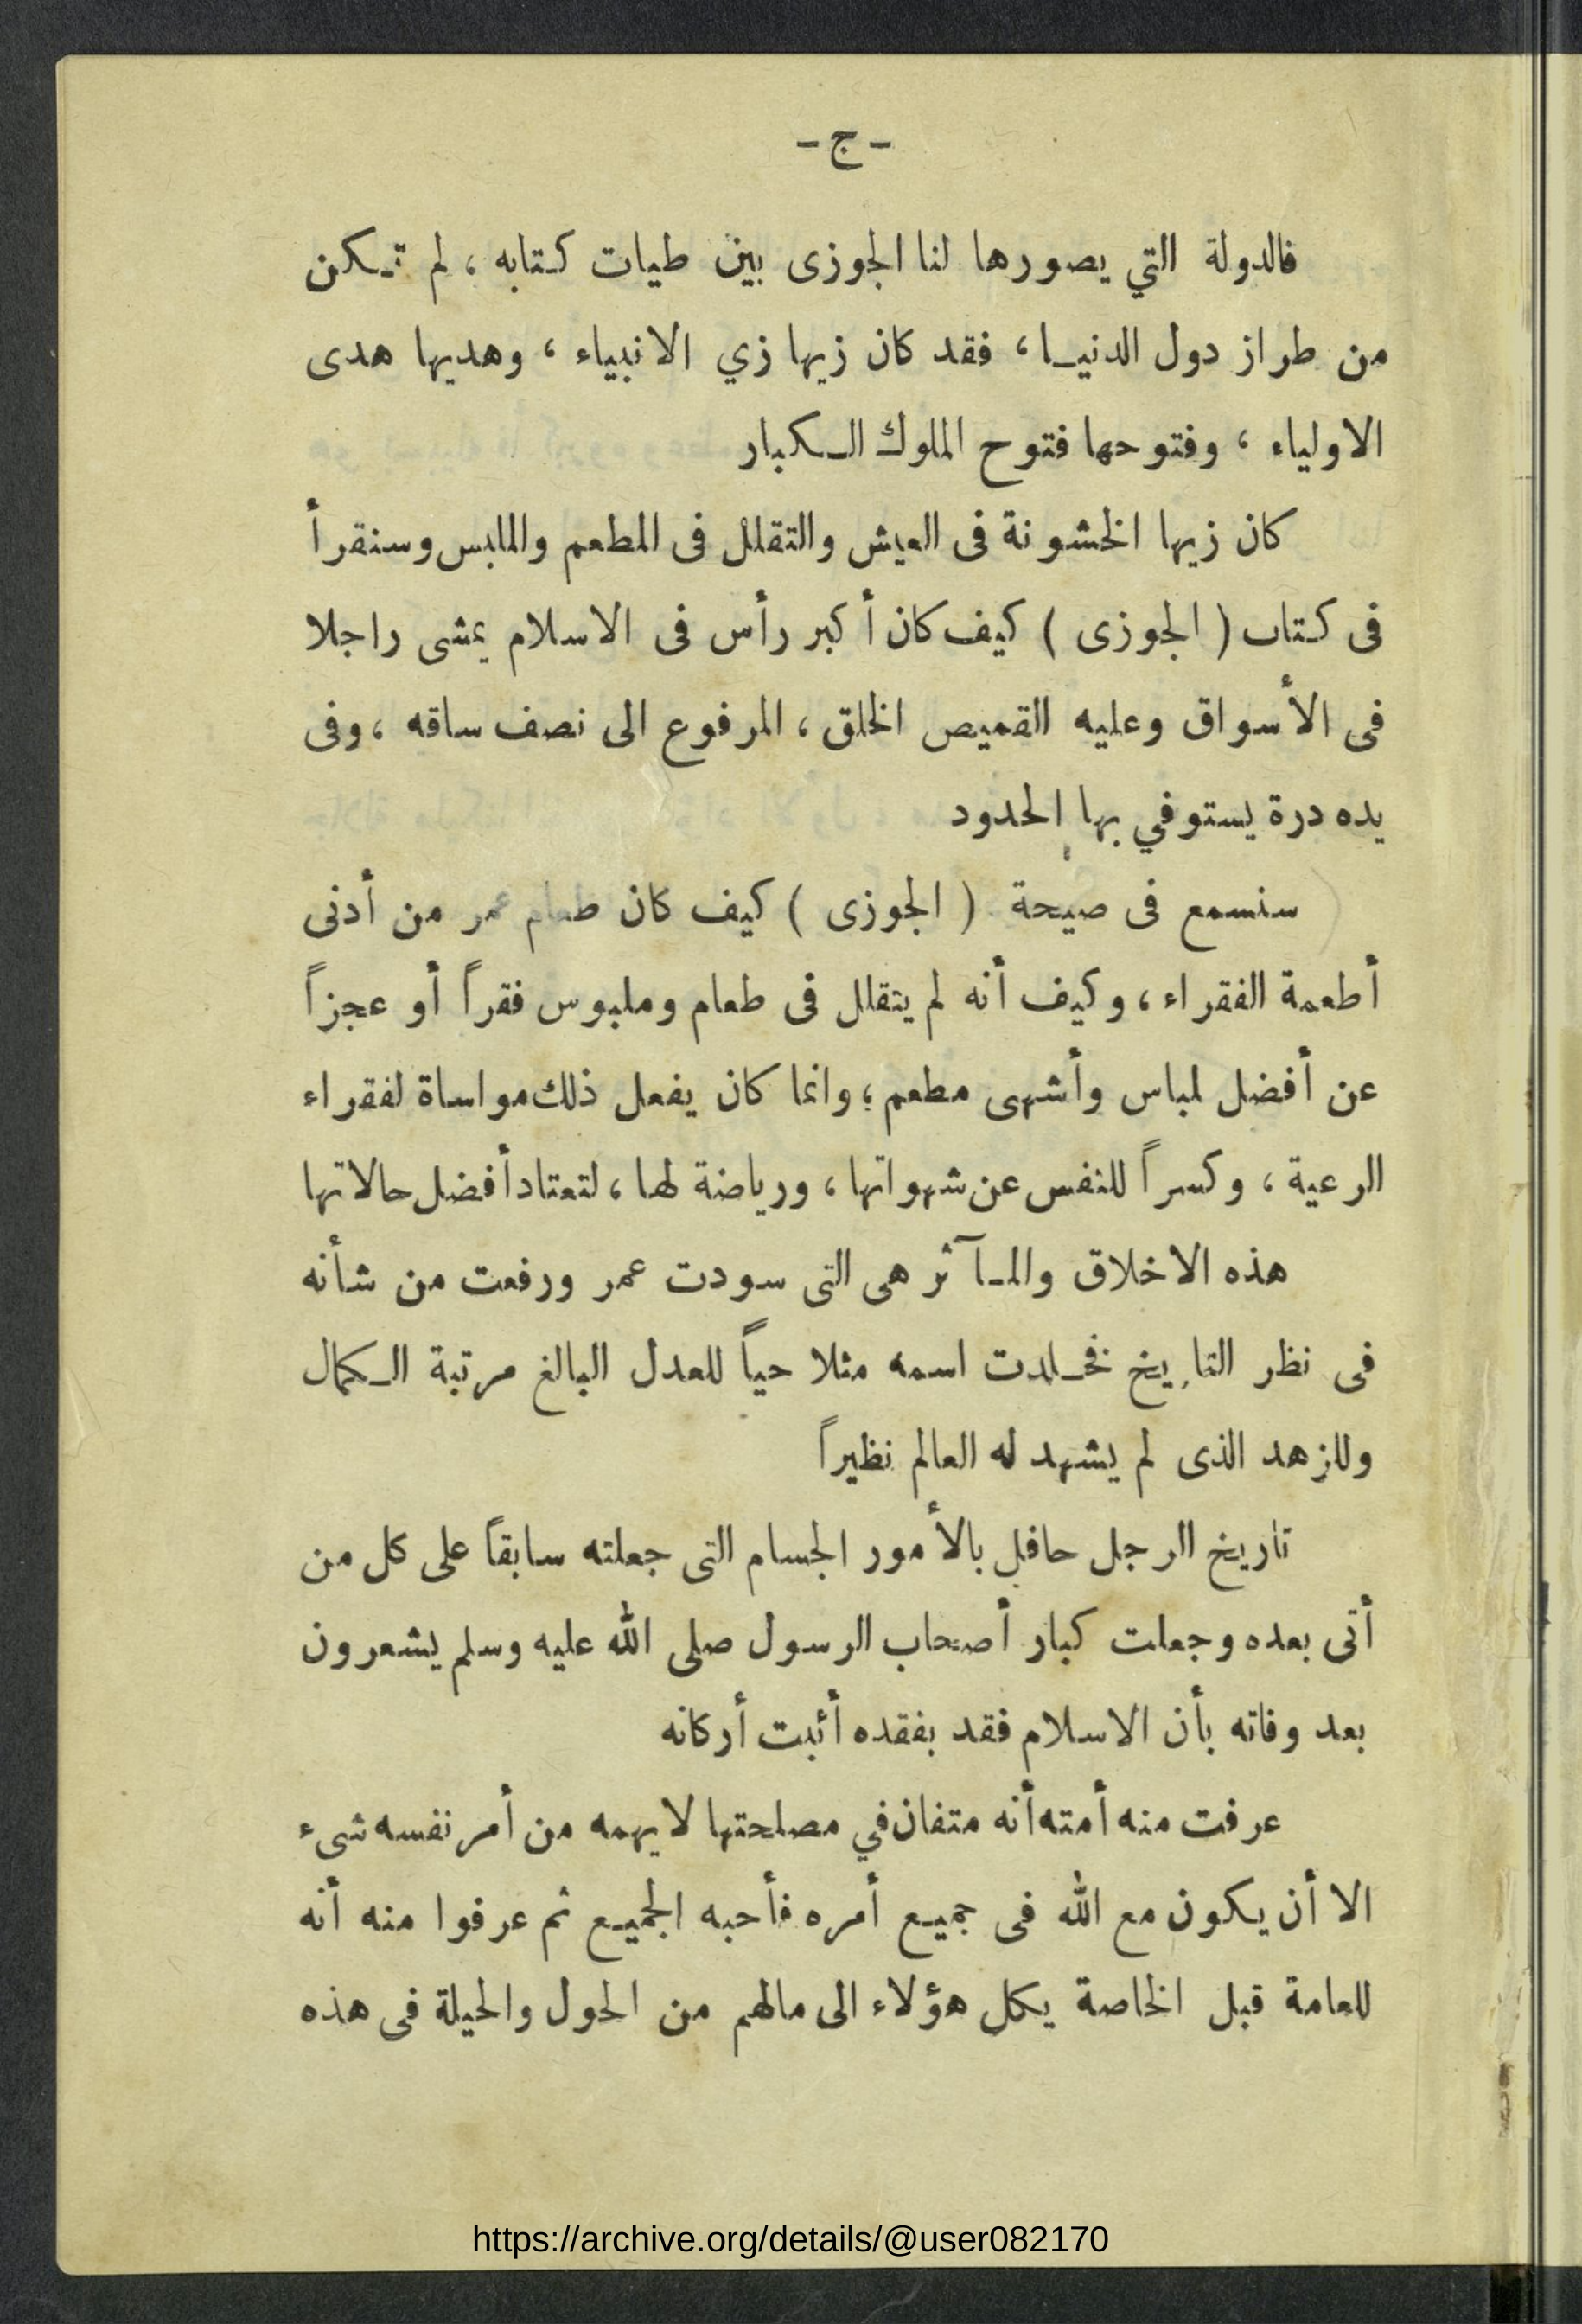 - ج -
فالدولة التي يصورها لنا الجوزى بين طيات كتابه ، لم تكن
من طراز دول الدنيا ، فقد كان زيها زي الانبياء ، وهديها هدى
الاولياء ، وفتوحها فتوح الملوك الكبار
كان زيها الخشونة فى العيش والتقلل فى المطعم والملبس وسنقرأ
فى كتاب ( الجوزى ) كيف كان أكبر رأس فى الاسلام يمشى راجلا
فى الأسواق وعليه القميص الخلق ، المرفوع الى نصف ساقه ، وفى
يده درة يستوفي بها الحدود
سنسمع فى صيحة ( الجوزى ) كيف كان طعام عمر من أدنى
أطعمة الفقراء ، وكيف أنه لم يتقلل فى طعام وملبوس فقراً أو عجزاً
عن أفضل لباس وأشهى مطعم ؛ وانما كان يفعل ذلك مواساة لفقراء
الرعية ، وكسراً للنفس عن شهواتها ، ورياضة لها ، لتعتاد أفضل حالاتها
هذه الاخلاق والمآثر هى التى سودت عمر ورفعت من شأنه
فى نظر التاريخ فخلدت اسمه مثلا حياً للعدل البالغ مرتبة الكمال
وللزهد الذى لم يشهد له العالم نظيراً
تاريخ الرجل حافل بالأمور الجسام التى جعلته سابقاً على كل من
أتى بعده وجعلت كبار أصحاب الرسول صلى الله عليه وسلم يشعرون
بعد وفاته بأن الاسلام فقد بفقده أثبت أركانه
عرفت منه أمته أنه متفان في مصلحتها لا يهمه من أمر نفسه شىء
الا أن يكون مع الله فى جميع أمره فأحبه الجميع ثم عرفوا منه أنه
للعامة قبل الخاصة يكل هؤلاء الى مالهم من الحول والحيلة فى هذه
https://archive.org/details/@user082170